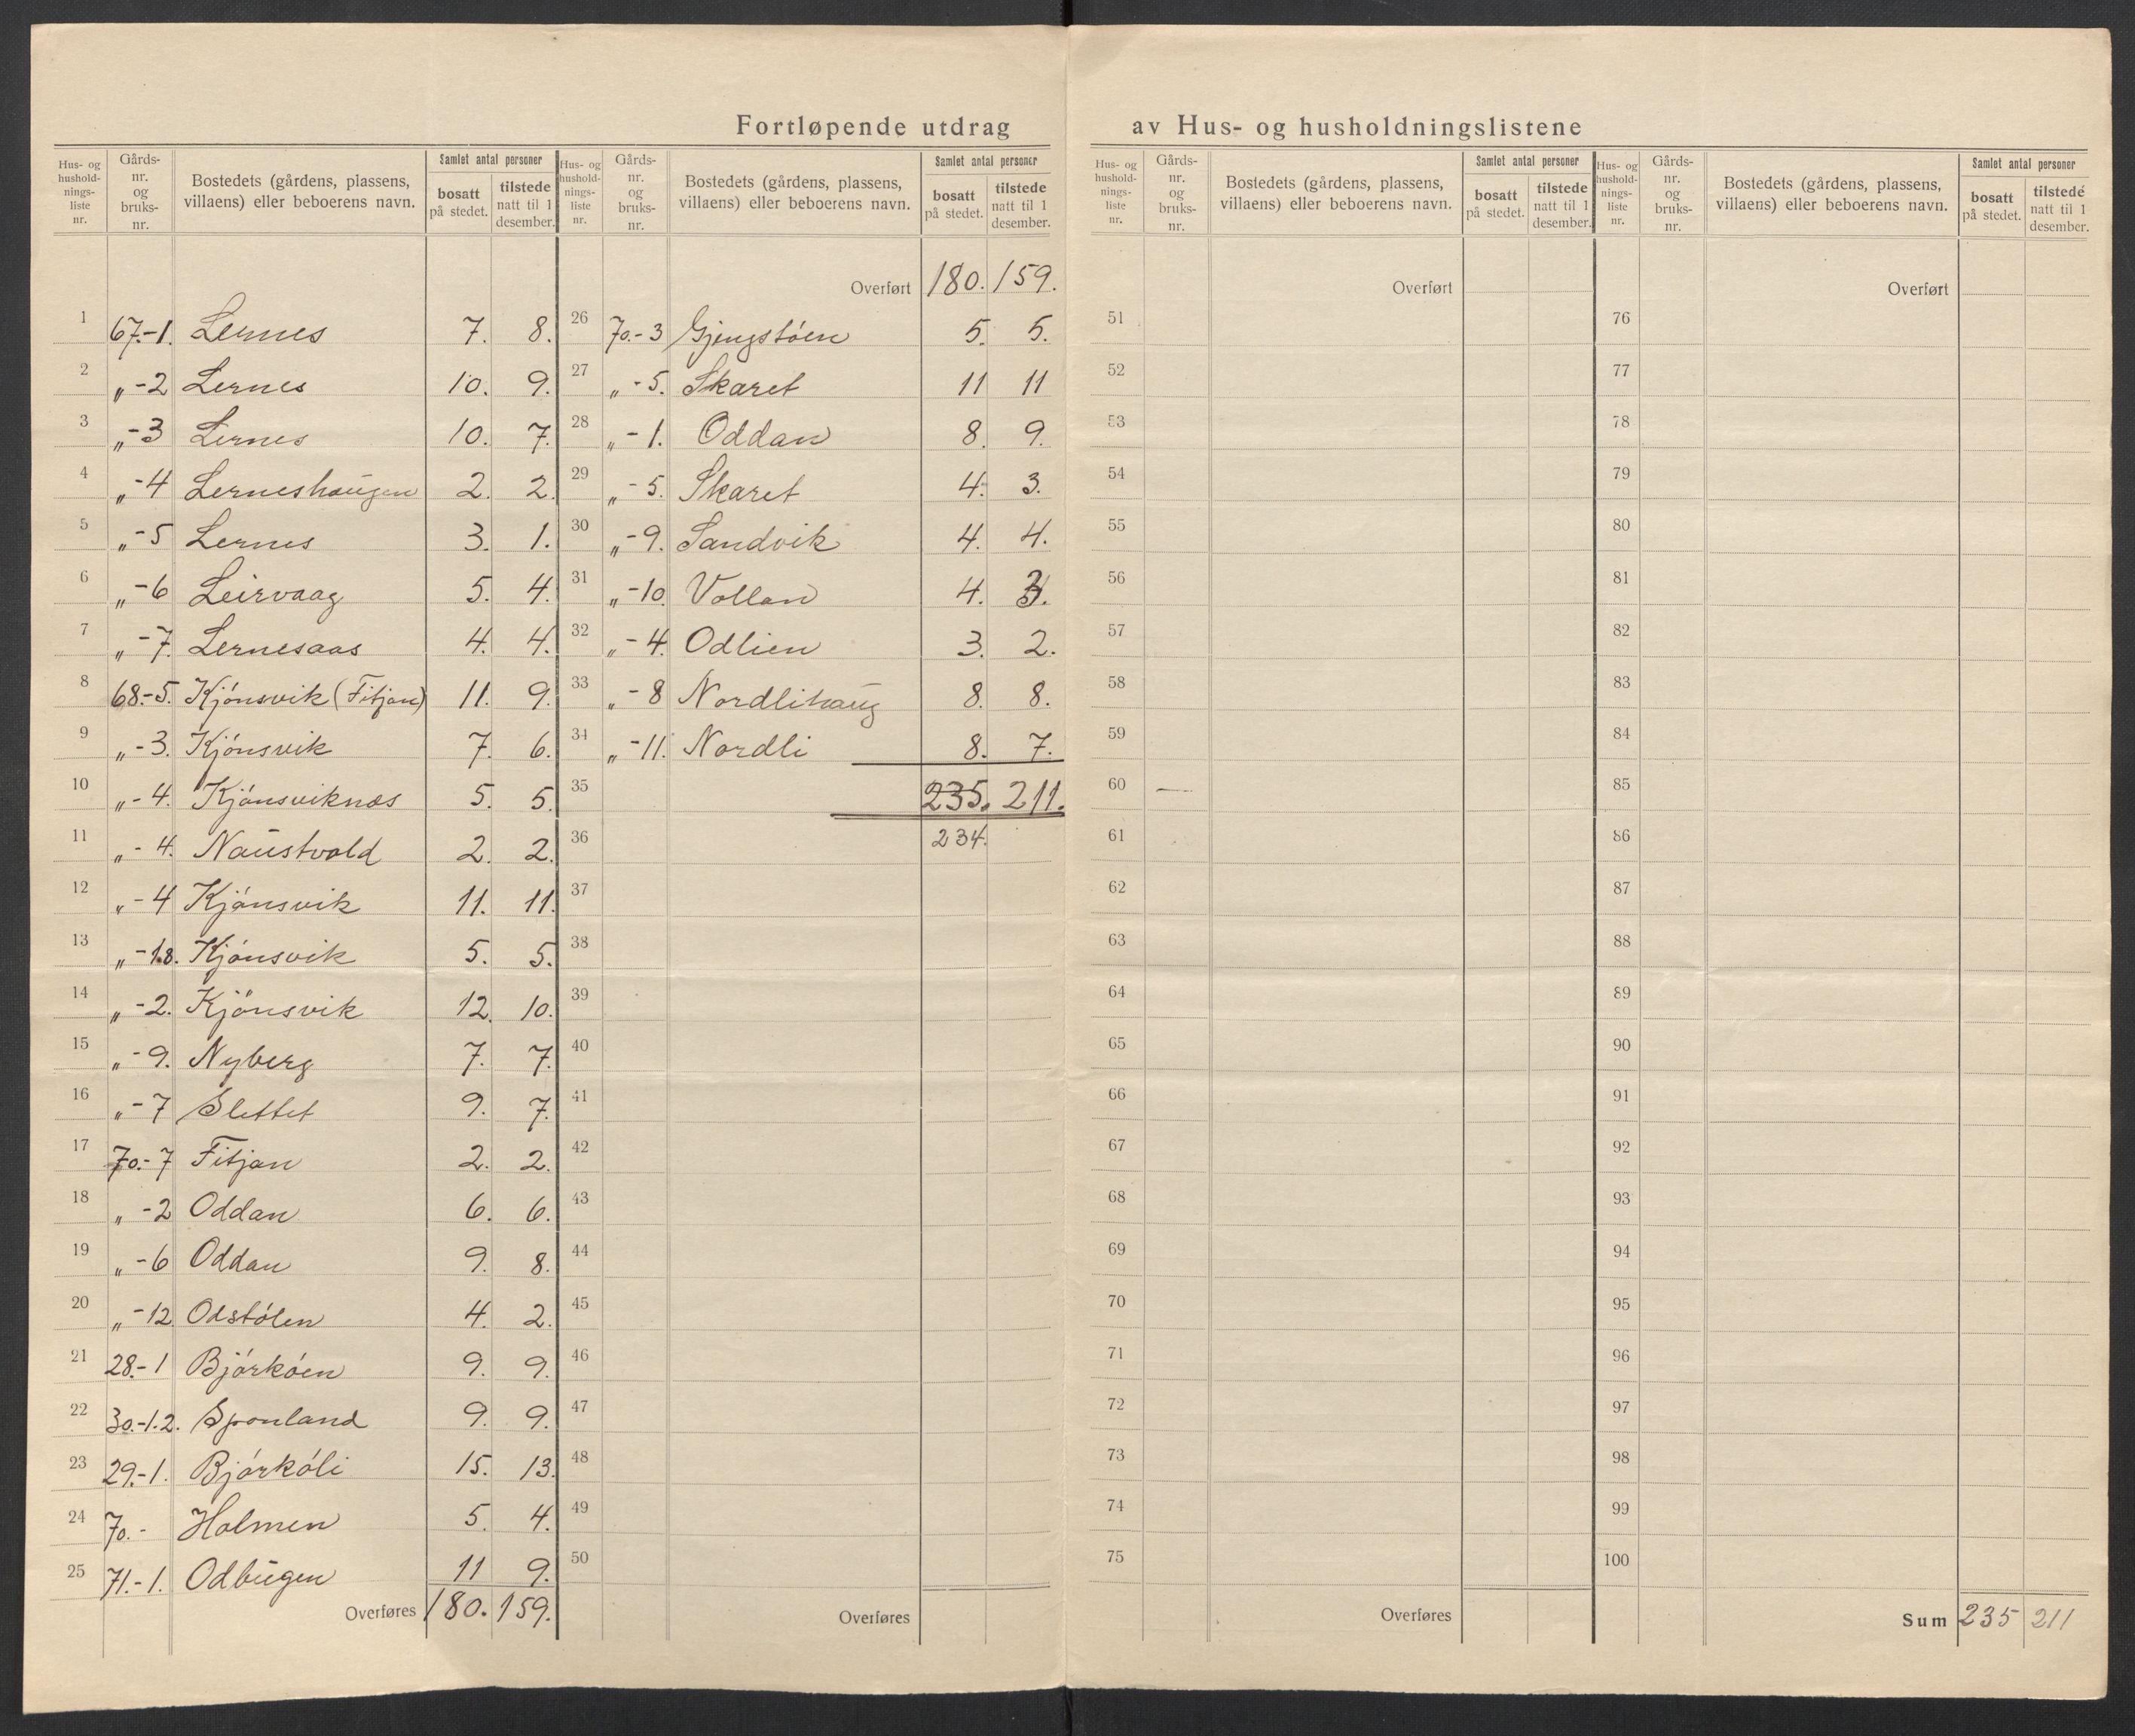 Fortløpende utdrag av Hus- og husholdningslistene
Hus- og husholdningsliste nr. | Gårdsnr. og bruksnr. | Bostedets (gårdens, plassens, villaens) eller beboerens navn. | Samlet antal personer | bosatt på stedet. | tilstede natt til 1 desember.
1 67.-1. Lernes 7. 8.
2 „-2 Lernes 10. 9.
3 „-3 Lernes 10. 7.
4 „-4 Lerneshaugen 2. 2.
5 „-5 Lernes 3. 1.
6 „-6 Leirvaag 5. 4.
7 „-7. Lernesaas 4. 4.
8 68.-5. Kjønsvik (Fitjan) 11. 9.
9 „-3. Kjønsvik 7. 6.
10 „-4. Kjønsviknes 5. 5.
11 „-4. Naustvold 2. 2.
12 „-4 Kjønsvik 11. 11.
13 „-1.8. Kjønsvik 5. 5.
14 „-2. Kjønsvik 12. 10.
15 „-9. Nyberg 7. 7.
16 „-7 Slettet 9. 7.
17 70.-7 Fitjan 2. 2.
18 „-2 Oddan 6. 6.
19 „-6 Oddan 9. 8.
20 „-12 Odstølen 4. 2.
21 28.-1 Bjørkøen 9. 9.
22 30.-1.2. Sponland 9. 9.
23 29.-1. Bjørkøli 15. 13.
24 70.- Holmen 5. 4.
25 71.-1. Odbugen 11 9.
Overføres 180. 159.
Hus- og husholdningsliste nr. | Gårdsnr. og bruksnr. | Bostedets (gårdens, plassens, villaens) eller beboerens navn. | Samlet antal personer | bosatt på stedet. | tilstede natt til 1 desember.
Overført 180. 159.
26 70.-3 Gjengstøen 5. 5.
27 „-5. Skaret 11 11
28 „-1. Oddan 8. 9.
29 „-5. Skaret 4. 3.
30 „-9. Sandvik 4. 4.
31 „-10. Vollan 4. 3.
32 „-4. Odlien 3. 2.
33 „-8 Nordlihaug 8. 8.
34 „-11. Nordli 8. 7.
35 235. 211.
36 234.
37
38
39
40
41
42
43
44
45
46
47
48
49
50
Overføres
Hus- og husholdningsliste nr. | Gårdsnr. og bruksnr. | Bostedets (gårdens, plassens, villaens) eller beboerens navn. | Samlet antal personer | bosatt på stedet. | tilstede natt til 1 desember.
Overført
51
52
53
54
55
56
57
58
59
60 —
61
62
63
64
65
66
67
68
69
70
71
72
73
74
75
Overføres
Hus- og husholdningsliste nr. | Gårdsnr. og bruksnr. | Bostedets (gårdens, plassens, villaens) eller beboerens navn. | Samlet antal personer | bosatt på stedet. | tilstede natt til 1 desember.
Overført
76
77
78
79
80
81
82
83
84
85
86
87
88
89
90
91
92
93
94
95
96
97
98
99
100
Sum 235 211